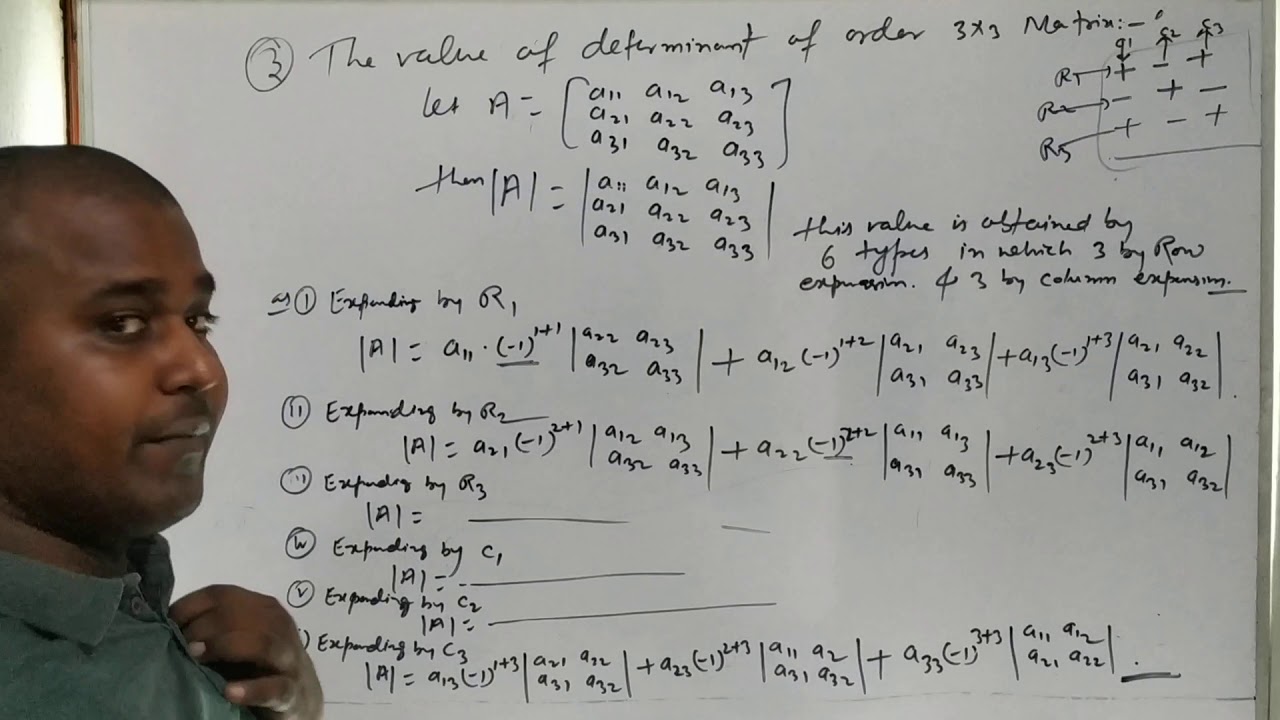 ③ The value of determinant of order 3×3 Matrix:-
C1 C2 C3
R1 → + - +
R2 → - + -
R3 + - +
let A = [ a11 a12 a13
a21 a22 a23
a31 a32 a33 ]
then |A| = | a11 a12 a13
a21 a22 a23
a31 a32 a33 |
this value is obtained by
6 types in which 3 by Row
expansion. & 3 by column expansion.
as (i) Expanding by R1
|A| = a11 . (-1)^1+1 | a22 a23 / a32 a33 | + a12 (-1)^1+2 | a21 a23 / a31 a33 | + a13 (-1)^1+3 | a21 a22 / a31 a32 | .
(ii) Expanding by R2
|A| = a21 (-1)^2+1 | a12 a13 / a32 a33 | + a22 (-1)^2+2 | a11 a13 / a31 a33 | + a23 (-1)^2+3 | a11 a12 / a31 a32 |
(iii) Expanding by R3
|A| =
(iv) Expanding by C1
|A| =
(v) Expanding by C2
|A| =
) Expanding by C3
|A| = a13 (-1)^1+3 | a21 a22 / a31 a32 | + a23 (-1)^2+3 | a11 a2 / a31 a32 | + a33 (-1)^3+3 | a11 a12 / a21 a22 | .